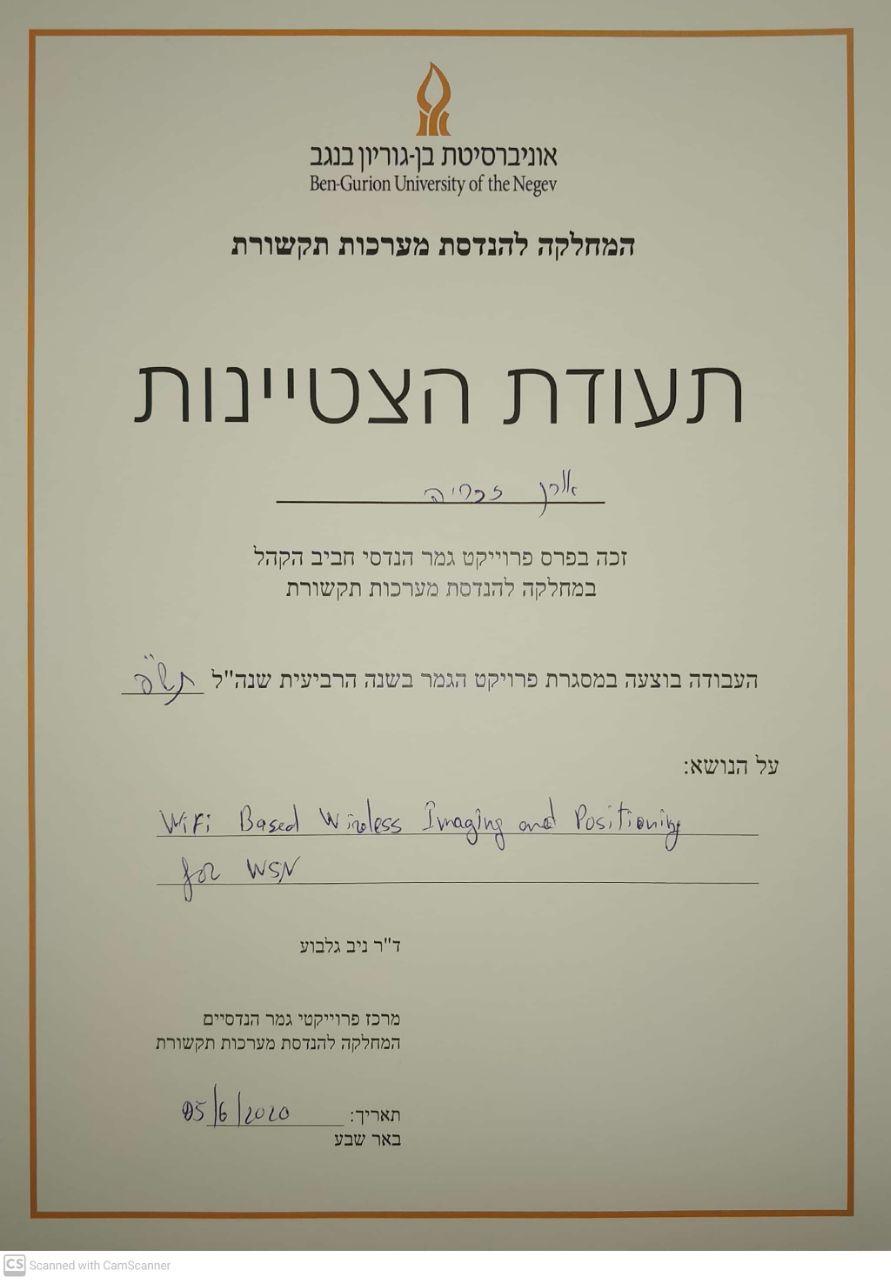 אוניברסיטת בן-גוריון בנגב
Ben-Gurion University of the Negev
המחלקה להנדסת מערכות תקשורת
תעודת הצטיינות
אורן זכריה
זכה בפרס פרוייקט גמר הנדסי חביב הקהל
במחלקה להנדסת מערכות תקשורת
העבודה בוצעה במסגרת פרויקט הגמר בשנה הרביעית שנה"ל תש"פ
על הנושא:
WiFi Based Wireless Imaging and Positioning
for WSN
ד"ר ניב גלבוע
מרכז פרוייקטי גמר הנדסיים
המחלקה להנדסת מערכות תקשורת
תאריך: 05/6/2020
באר שבע
CS Scanned with CamScanner